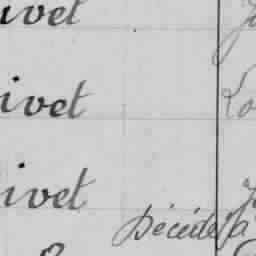 ivet
ivet
ivet
Décédé à